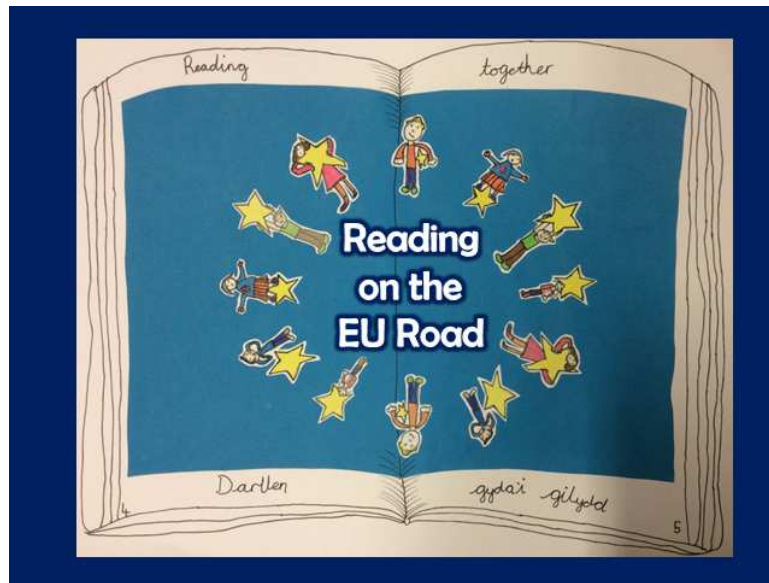 Reading together
Reading
on the
EU Road
Darllen gyda'i gilydd
4 5